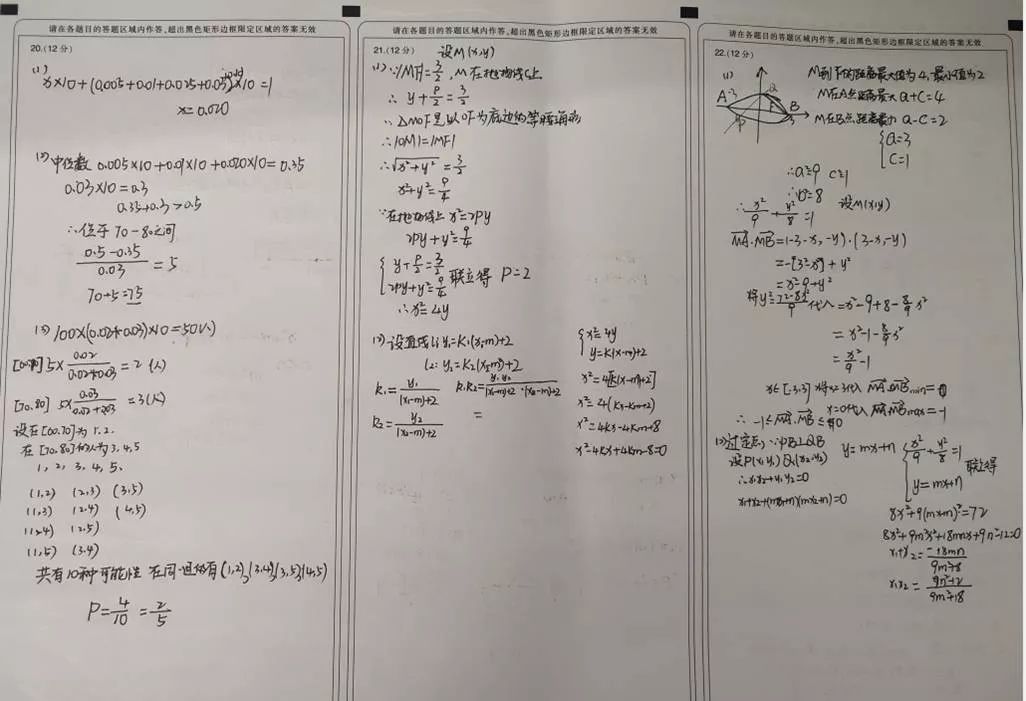 请在各题目的答题区域内作答,超出黑色矩形边框限定区域的答案无效
20.(12分)
(1)
x×10+(0.005+0.01+0.025+0.03)×10=1
x=0.020
(2)中位数 0.005×10+0.01×10+0.020×10=0.35
0.03×10=0.3
0.35+0.3>0.5
∴位于70-80之间
(0.5-0.35)/0.03=5
70+5=75
(3)100×(0.02+0.03)×10=50(人)
5×0.02/(0.02+0.03)=2(人)
[70.80] 5×0.03/(0.02+0.03)=3(人)
设在[60.70]为1.2.
在[70.80]的人为3.4.5
1,2,3.4,5.
(1,2) (2,3) (3,5)
(1,3) (2.4) (4,5)
(1,4) (2.5)
(1,5) (3.4)
共有10种可能性 在同一组的有(1,2),(3,4),(3,5),(4,5)
P=4/10=2/5
请在各题目的答题区域内作答,超出黑色矩形边框限定区域的答案无效
21.(12分) 设M(x,y)
(1)∵|MF|=3/2,M在抛物线上
∴y+P/2=3/2
∴△MOF是以OF为底边的等腰三角形
∴|OM|=|MF|
∴√(x²+y²)=3/2
x²+y²=9/4
∵在抛物线上 x²=2Py
2Py+y²=9/4
{y+P/2=3/2
2Py+y²=9/4 联立得 P=2
∴x²=4y
(2)设直线l₁:y₁=k₁(x₁-m)+2
l₂:y₂=k₂(x₂-m)+2
k₁=y₁/((x₁-m)+2) k₁.k₂=y₁y₂/((x₁-m)+2·(x₂-m)+2)
=
k₂=y₂/((x₂-m)+2)
{x²=4y
y=k(x-m)+2
x²=4[k(x-m)+2]
x²=4(kx-km+2)
x²=4kx-4km+8
x²-4kx+4km-8=0
请在各题目的答题区域内作答,超出黑色矩形边框限定区域的答案无效
22.(12分)
(1)
M到F的距离最大值为4,最小值为2
A -3 Q F B 3 P
M在A点距离最大 a+c=4
M在B点,距离最小 a-c=2
{a=3
c=1
∴a²=9 c²=1
∴b²=8
∴x²/9+y²/8=1 设M(x,y)
MA·MB=(-3-x,-y)·(3-x,-y)
=-[3²-x²]+y²
=x²-9+y²
将y²=(72-8x²)/9代入=x²-9+8-8/9x²
=x²-1-8/9x²
=x²/9-1
x=0代入
∴-1≤MA·MB≤0
(2)过定点,∵PB⊥QB
设P(x₁,y₁) Q(x₂,y₂)
∴x₁x₂+y₁y₂=0
x₁+x₂+(mx₁+n)(mx₂+n)=0
y=mx+n {x²/9+y²/8=1
y=mx+n 联立得
8x²+9(mx+n)²=72
8x²+9m²x²+18mnx+9n²-12=0
x₁+x₂=-18mn/(9m²+8)